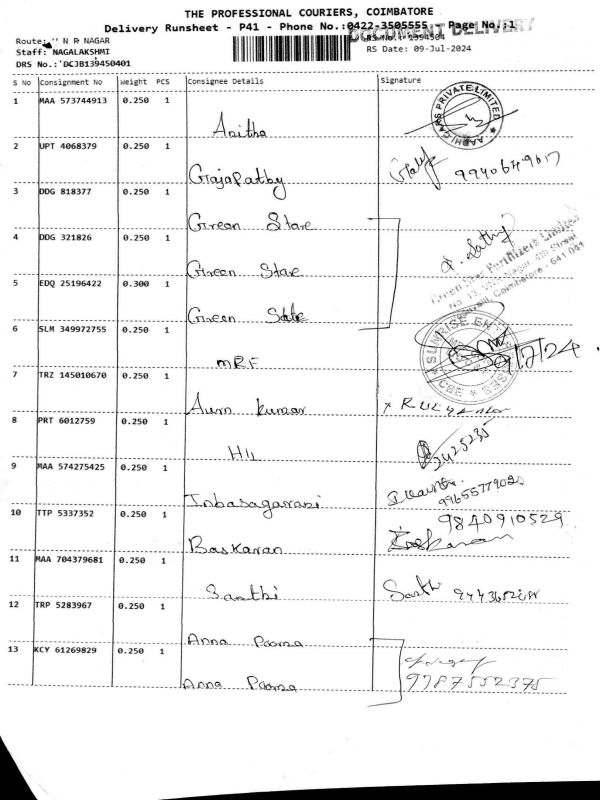 THE PROFESSIONAL COURIERS, COIMBATORE
DOCUMENT DELIVERY
Delivery Runsheet - P41 - Phone No.:0422-3505555 Page No.:1
Route: N R NAGAR
RS No.: 1394504
Staff: NAGALAKSHMI
RS Date: 09-Jul-2024
DRS No.: DCJB139450401
S No Consignment No Weight PCS Consignee Details Signature
1 MAA 573744913 0.250 1 Anitha
AADHI CARS PRIVATE LIMITED
2 UPT 4068379 0.250 1 Gajapathy
3 DDG 818377 0.250 1 Green Stare
4 DDG 321826 0.250 1 Green Stare
Green Star Fertilizers Limited
Coimbatore - 641 041
5 EDQ 25196422 0.300 1 Green State
6 SLM 349972755 0.250 1 MRF
SUNRISE ENT
CBE
9/7/24
7 TRZ 145010670 0.250 1 Aurn kumar
8 PRT 6012759 0.250 1 HLL
3425235
9 MAA 574275425 0.250 1 Inbasagarani
9965577902
10 TTP 5337352 0.250 1 Baskaran
9840910529
Baskaran
11 MAA 704379681 0.250 1 Santhi
Santhi
12 TRP 5283967 0.250 1 Anna Poorna
13 KCY 61269829 0.250 1 Anna Poorna
9787552375